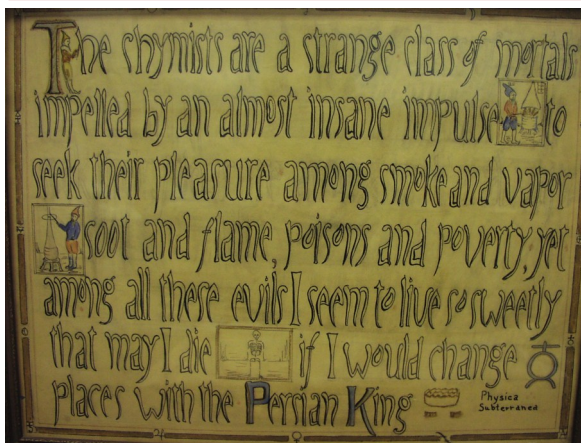 The chymists are a strange class of mortals
impelled by an almost insane impulse to
seek their pleasure among smoke and vapor
soot and flame, poisons and poverty, yet
among all these evils I seem to live so sweetly
that may I die if I would change
places with the Persian King
Physica
Subterranea